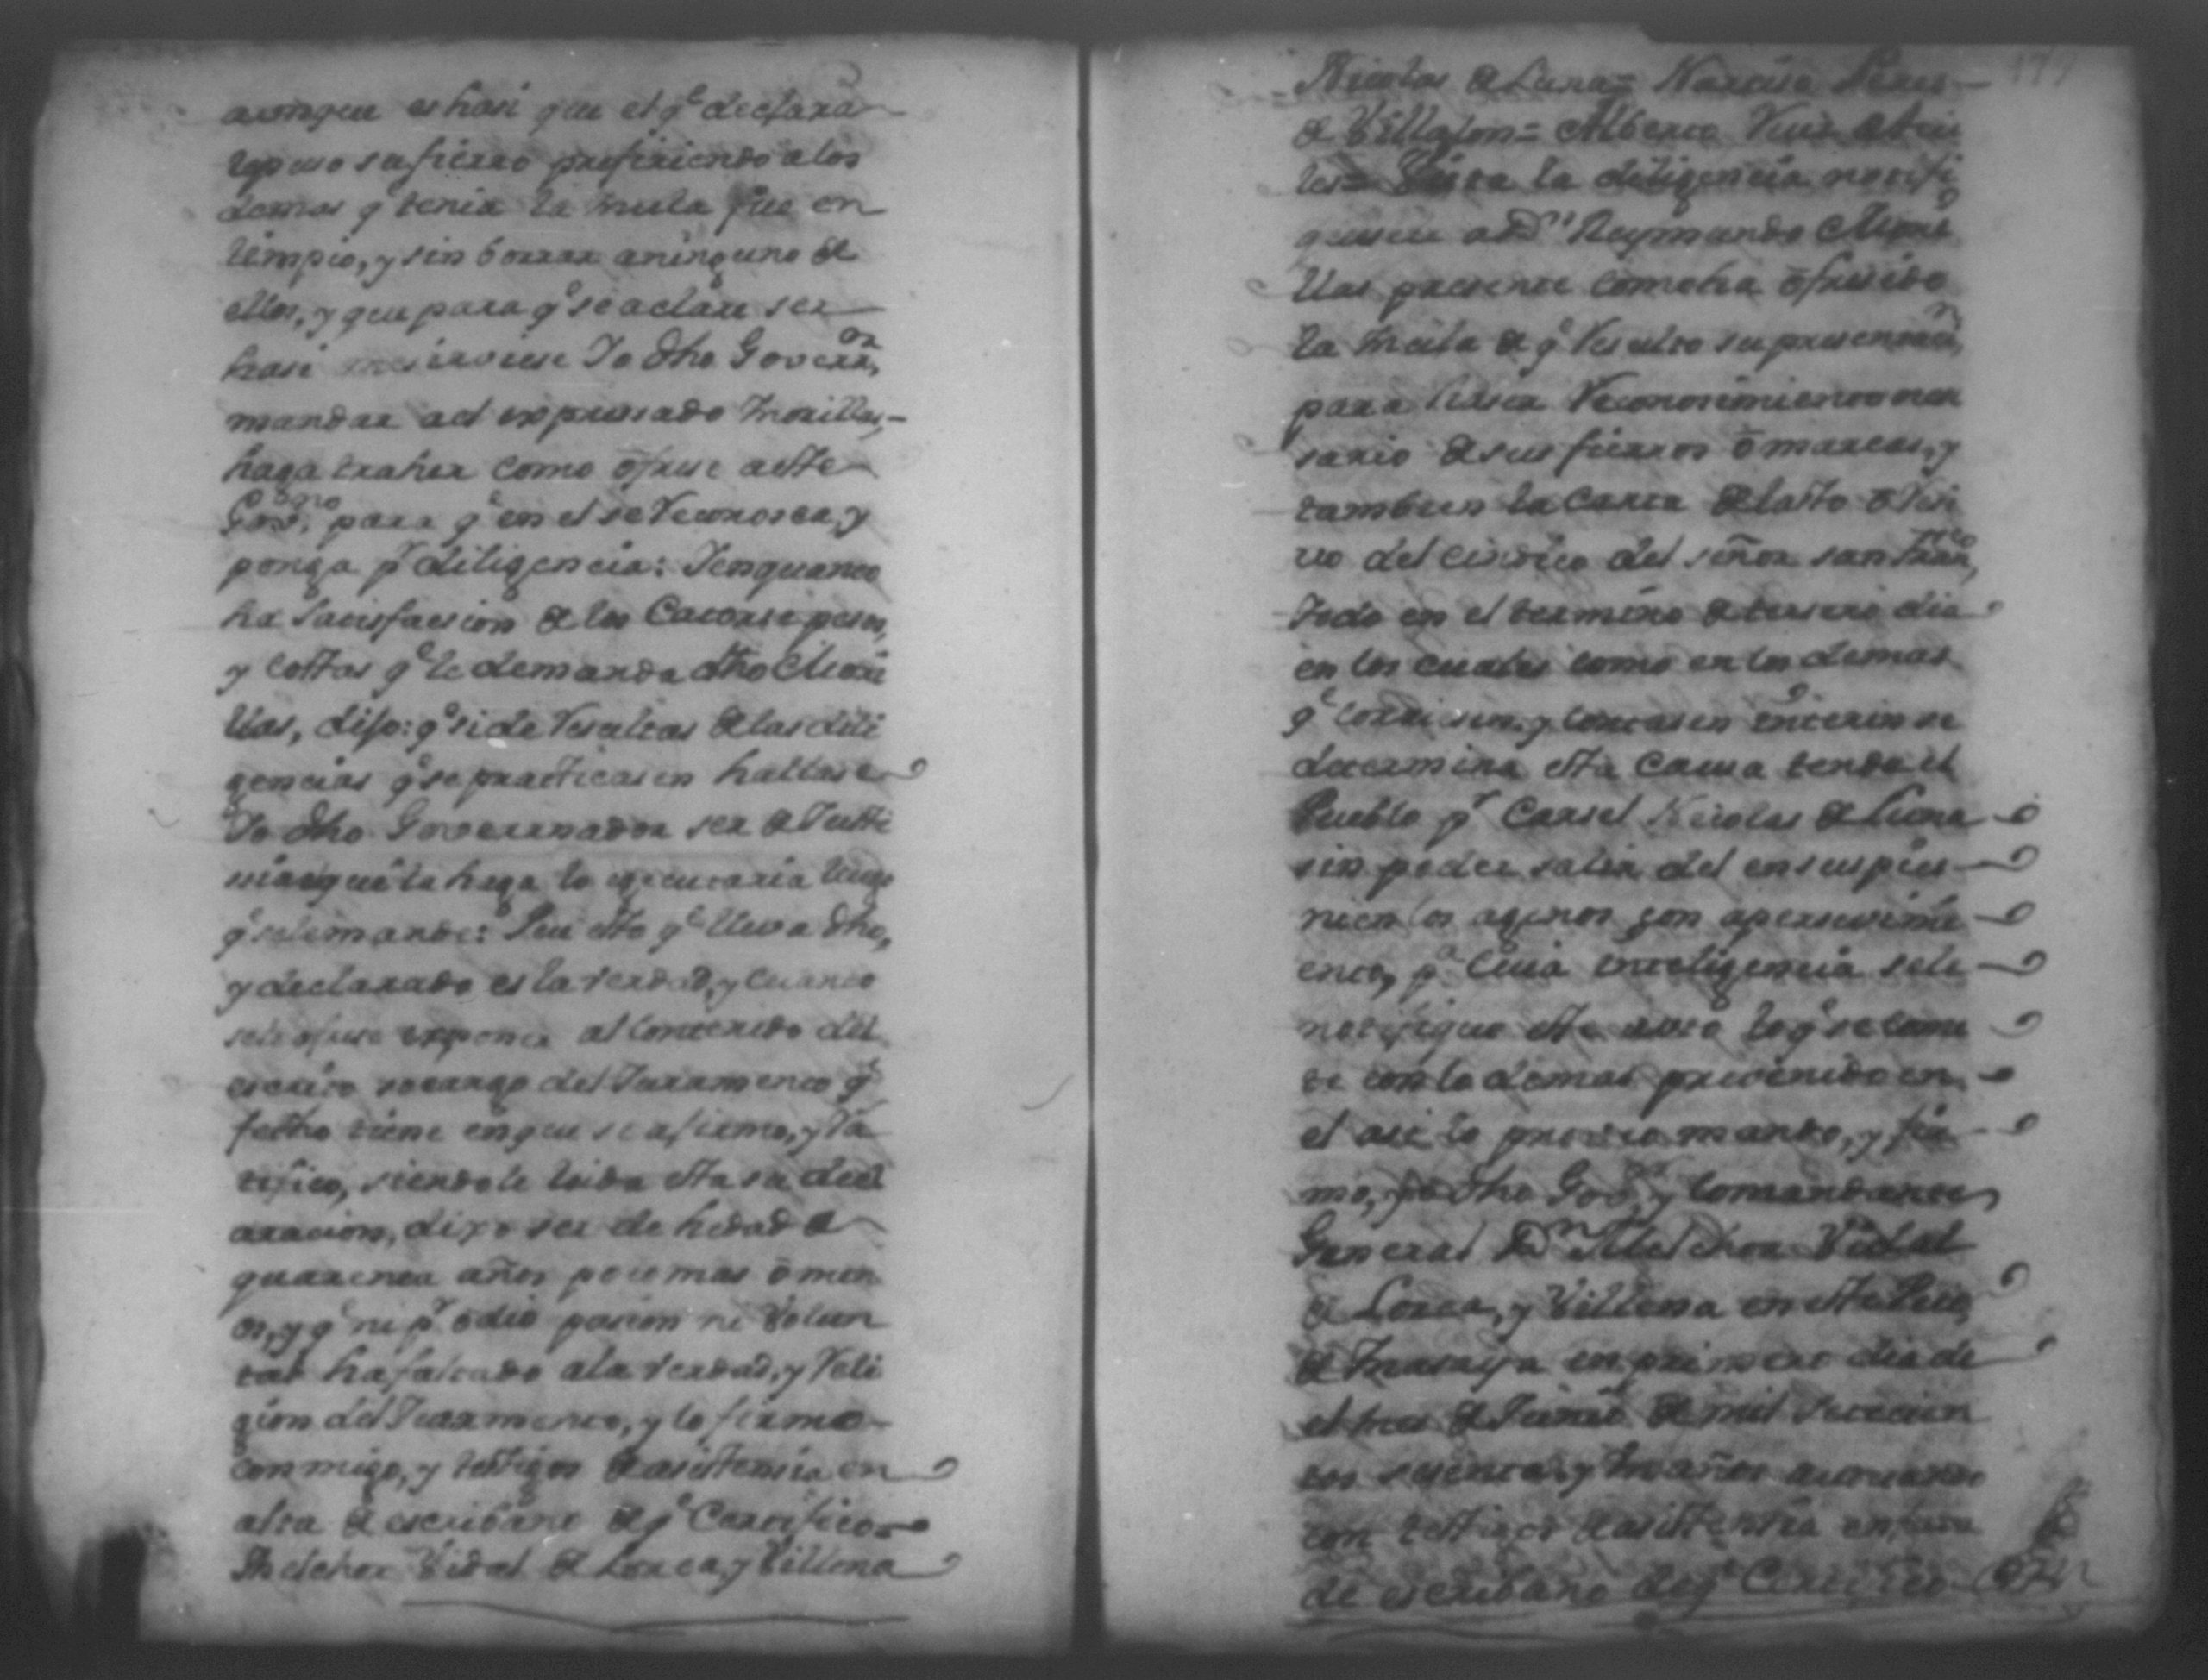 aunque es hasi que el q.e declara
le puso su fierro prefiriendo a los
demas q.e tenia la mula fue en
limpio, y sin borrar aninguno de
ellos, y que para q.e se aclare ser
hasi me sirviese Yo dho Governor
mandar al expresado Morillas,-
haga traher como ofrese aeste
Govno para q.e en el se Reconosca, y
ponga p.r diligencia: Yenquanto
ha Satisfacion de los Catorse pesos,
y costas q.e le demanda dho Mori
llas, dijo: q.e si de Resultas de las dili
gencias q.e se practicasen hallase
Yo dho Governador ser de Justi
sia que la haga lo egecutaria luego
q.e sele mande: Que esto q.e lleva dho,
y declarado es la verdad, y cuanto
sele ofrese exponer al contenido del
escrito socargo del Juramento q.e
fecho tiene en que se afirmo, y Ra
tifico, siendole leida esta su decl
aracion, dixo ser de hedad de
quarenta años poco mas o men
os, y q.e ni p.r odio pasion ni Volun
tad ha faltado ala verdad, y Reli
gion del Juramento, y lo firmo
conmigo, y testigos de asistensia en
alta de escribano de q.e Certifico
Melchor Vidal de Lorca, y Villena
Nicolas de Luna= Narciso Peres
de Villalon= Alberto Ruis de
les= Vista la diligencia notifi
quesele a D.n Reymundo Mori
llas presente como ha ofrecido
la mula de q.e Resulto su
para haser Reconosimiento nese
sario de sus fierros o marcas, y
tambien la Carta de lasto o Resi
vo del cindico del señor san Franco,
todo en el termino de tersero dia
en los cuales como en los demas
q.e corriesen, y contasen interin se
determina esta Causa tenda el
Pueblo p.r Carsel Nicolas de Luna
sin poder salir del en sus pies
ni en los agenos con apersevimi
ento, p.a cuia inteligencia sele
notifique este auto lo q.e se come
te con lo demas prevenido en
el asi lo proveo mando, y fir
mo, yo dho Gov.or y Comandante
General D.n Melchor Vidal
de Lorca, y Villena en este
de Masaya en primero dia de
el mes de de mil setecien
tos sesenta, y años actuando
con testigos de asistensia en falta
de escribano de q.e Certifico